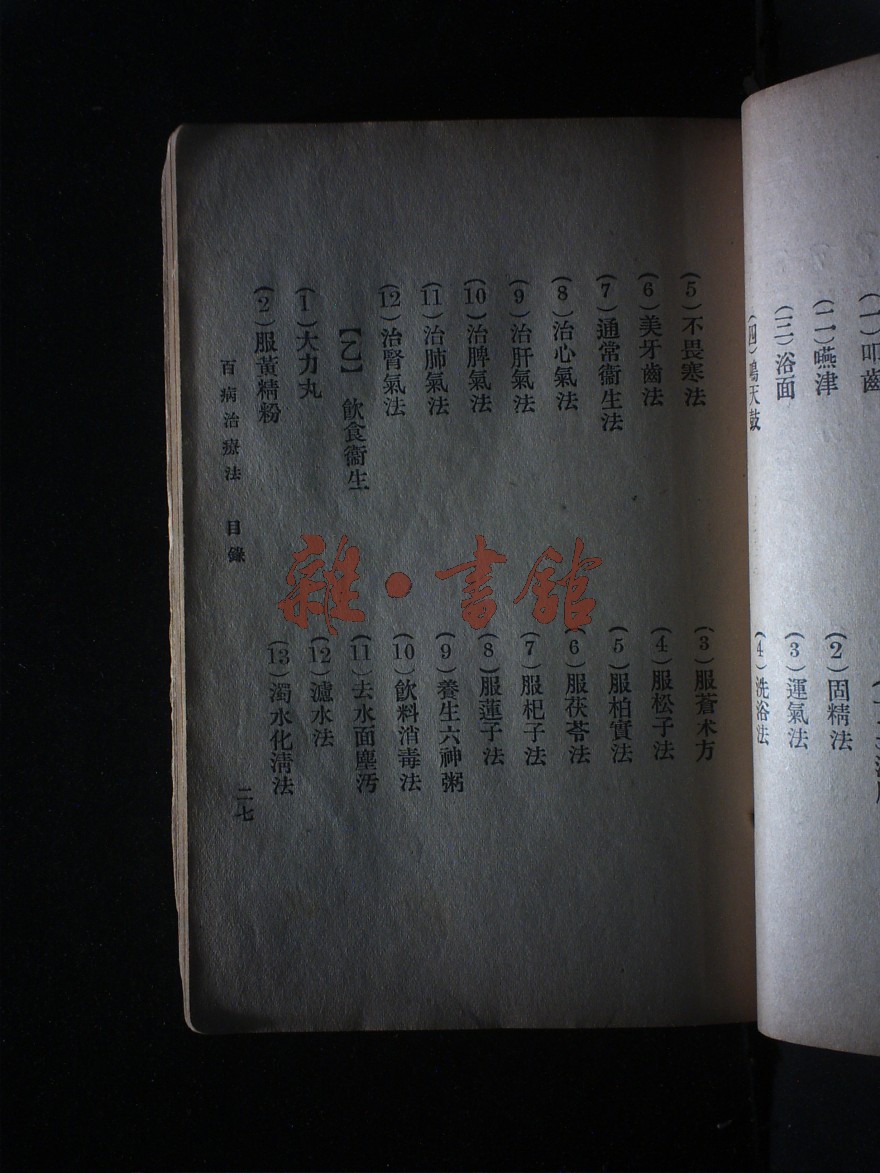 (一)叩齒
(二)嚥津
(三)浴面
(四)鳴天鼓
(2)固精法
(3)運氣法
(4)洗浴法
(5)不畏寒法
(6)美牙齒法
(7)通常衞生法
(8)治心氣法
(9)治肝氣法
(10)治脾氣法
(11)治肺氣法
(12)治腎氣法
【乙】 飲食衞生
(1)大力丸
(2)服黃精粉
(3)服蒼朮方
(4)服松子法
(5)服柏實法
(6)服茯苓法
(7)服杞子法
(8)服蓮子法
(9)養生六神粥
(10)飲料消毒法
(11)去水面塵汚
(12)濾水法
(13)濁水化清法
百病治療法 目錄
二七
雜·書館